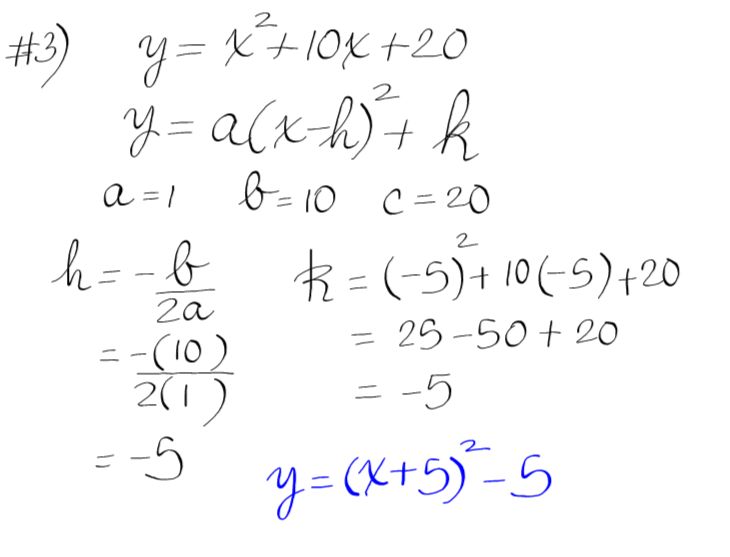 #3) y = x² + 10x + 20
y = a(x - h)² + k
a = 1 b = 10 c = 20
h = -b/2a
= -(10)/2(1)
= -5
k = (-5)² + 10(-5) + 20
= 25 - 50 + 20
= -5
y = (x + 5)² - 5